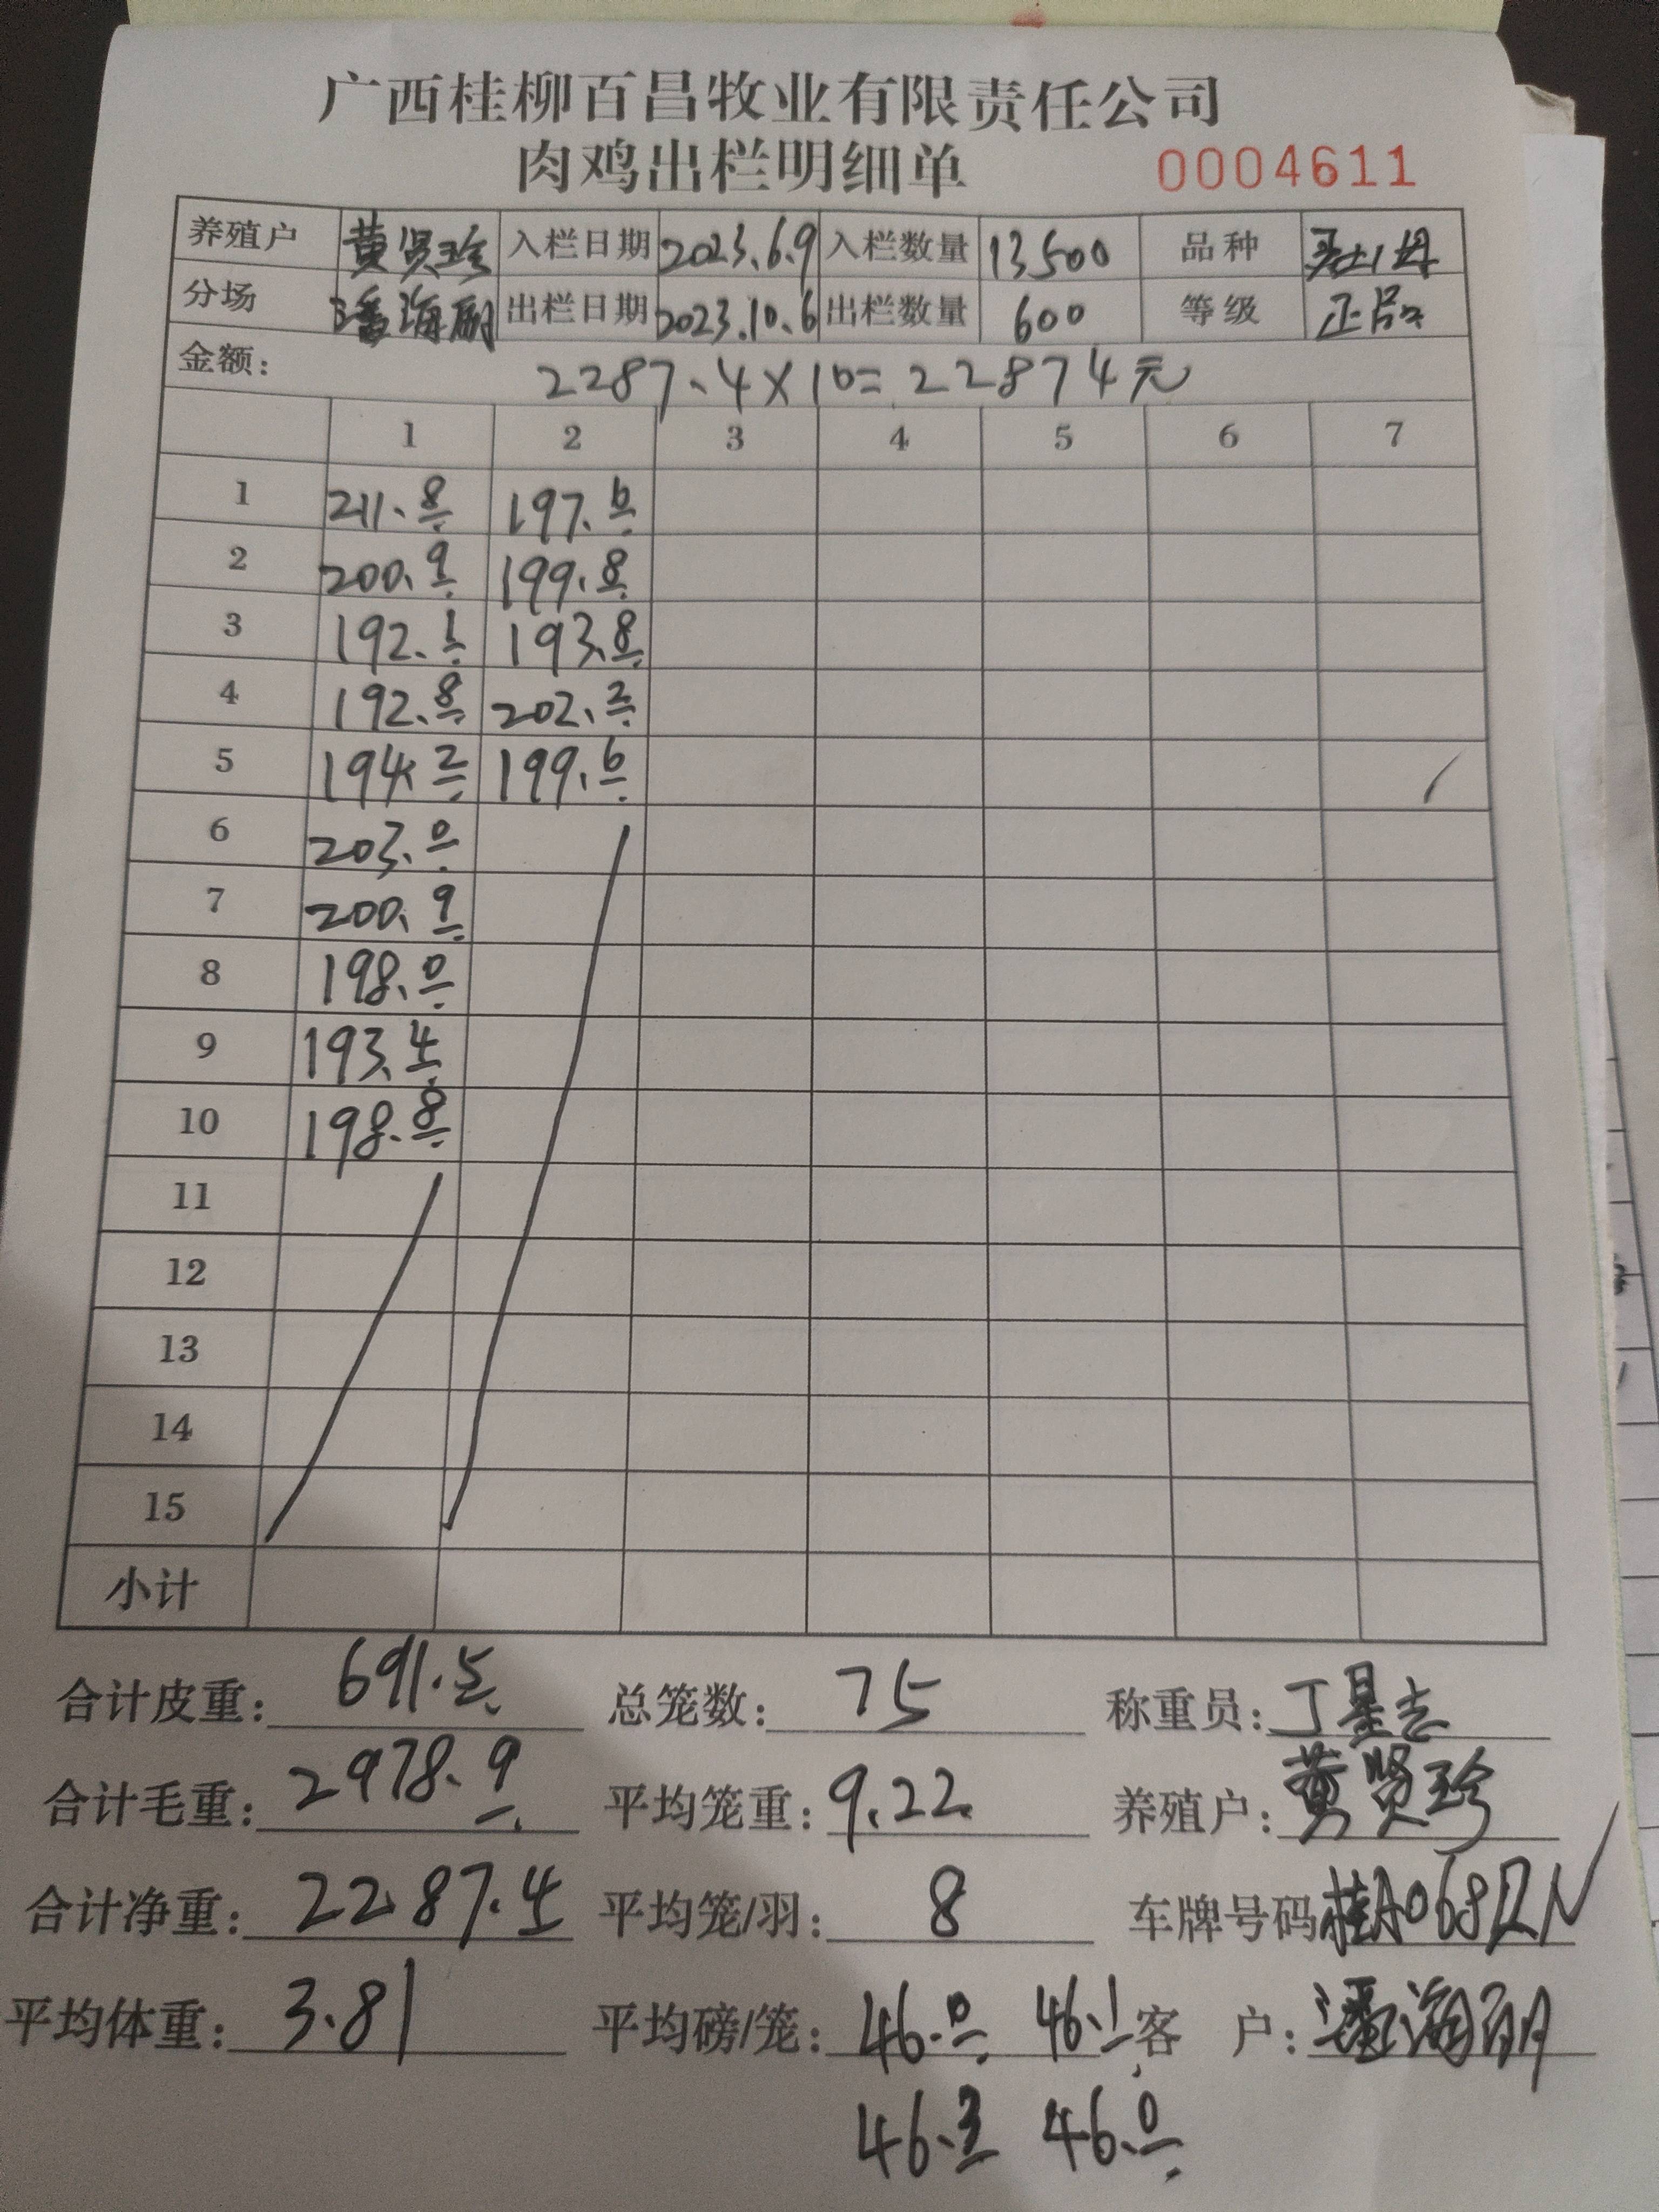 广西桂柳百昌牧业有限责任公司
肉鸡出栏明细单 0004611
养殖户 黄贤珍 入栏日期 2023.6.9 入栏数量 13500 品种
分场 潘海丽 出栏日期 2023.10.6 出栏数量 600 等级 正品
金额: 2287.4×10=22874元
1 2 3 4 5 6 7
1 211.8 197.6
2 200.9 199.8
3 192.1 193.8
4 192.8 202.2
5 194.2 199.6
6 203.0
7 200.9
8 198.0
9 193.4
10 198.8
11
12
13
14
15
小计
合计皮重: 691.5 总笼数: 75 称重员: 丁星志
合计毛重: 2978.9 平均笼重: 9.22 养殖户: 黄贤珍
合计净重: 2287.4 平均笼/羽: 8 车牌号码
平均体重: 3.81 平均磅/笼: 46.0 46.1 客 户: 潘海丽
46.3 46.0